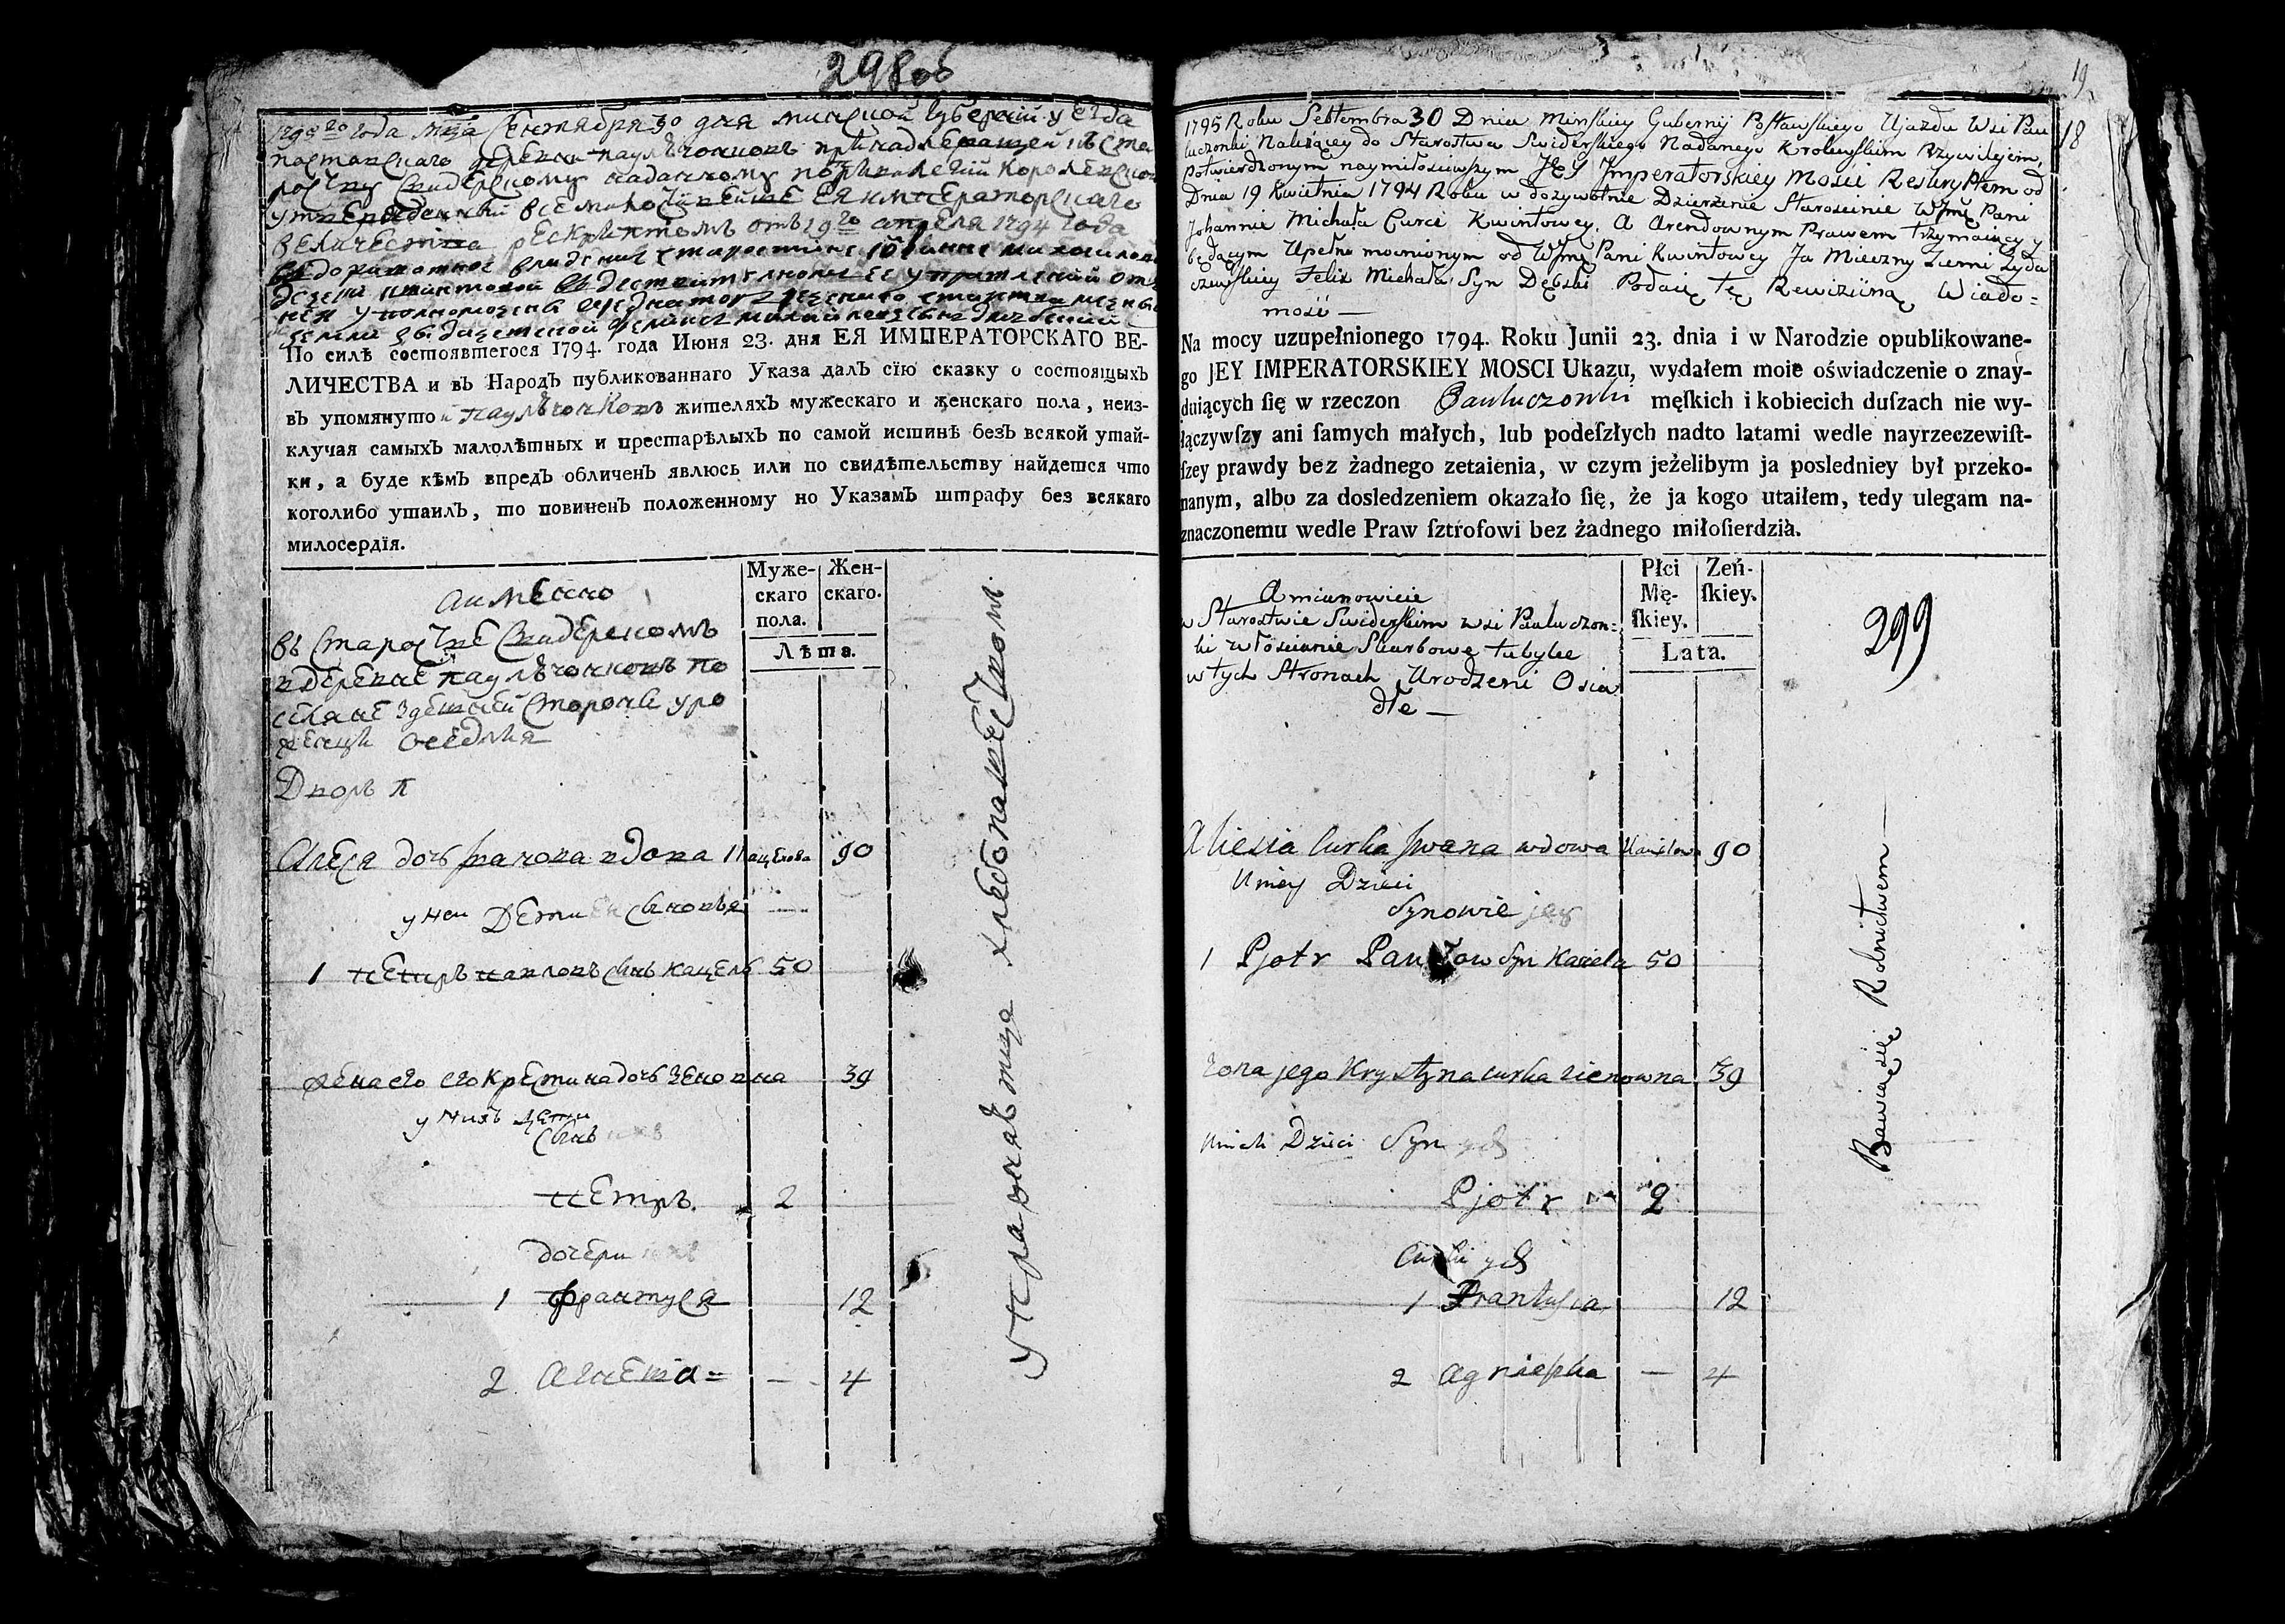 298об
1795го года мца Сентября 30 дня минской Губернии уезда
поставскаго деревни паулючонковъ принадлежащей къ ста
роству Свидерскому наданному
утвержденный всемилостивейше ея императорскаго
величества рескриптомъ отъ 19го апреля 1794 года
владение старостине
земли
По силѣ состоявшегося 1794. года Июня 23. дня ЕЯ ИМПЕРАТОРСКАГО ВЕ-
ЛИЧЕСТВА и въ Народъ публикованнаго Указа далъ сїю сказку о состоящыхъ
въ упомянутой паулючонковъ жителяхъ мужескаго и женскаго пола, неиз-
ключая самыхъ малолѣтныхъ и престарѣлыхъ по самой истинѣ безъ всякой утай-
ки, а буде кѣмъ впредъ обличенъ явлюсь или по свидѣтельству найдется что
коголибо утаилъ, то повиненъ положенному по Указамъ штрафу без всякаго
милосердїя.
Муже-
скаго
пола.
Жен-
скаго.
Лѣта.
аименно
въ Старостве Свидерскомъ
в деревне паулючонковъ по
селяне здешней стороны уро
женцы оседлыя
Дворъ
Алеся дочь Ивана вдова Кацелова 90
у неи Дети ея сыновья
1 Петръ павловъ сынъ кацелъ 50
жена его кристина дочь Зеновна 39
у нихъ дети
сынъ ихъ
Петръ. 2
дочери ихъ
1 Франтуся 12
2 Агнета = — 4
упражняются хлебопашествомъ
19
18
1795 Roku Sebtembra 30 Dnia Minskiey Gubernij Postawskiego Ujazdu Wsi Pau
luczonki Należącey do Starostwa Swiderskiego Nadanego Krolewskim Przywilejem,
Potwierdzonym naymiłosciwszym Jey Imperatorskiey Mosci Reskryptem od
Dnia 19 Kwietnia 1794 Roku w dożywotnie Dzierżenie Staroscinie WJmę Pani
Johannie Michała Curce Kwintowey, A Arendownym Prawem trzymaiący y
będącym Upełno mocnionym od WJmę Pani Kwintowey Ja Mieczny Ziemi Zyda
czewskiey Felix Michała Syn Dębski Podaię tę Rewiziiną Wiado=
mość —
Na mocy uzupełnionego 1794. Roku Junii 23. dnia i w Narodzie opublikowane-
go JEY IMPERATORSKIEY MOSCI Ukazu, wydałem moie oświadczenie o znay-
duiących ſię w rzeczon Pauluczonki męſkich i kobiecich duſzach nie wy-
łączywſzy ani ſamych małych, lub podeſzłych nadto latami wedle nayrzeczewiſt-
ſzey prawdy bez żadnego zetaienia, w czym jeżelibym ja posledniey był przeko-
nanym, albo za dosledzeniem okazało ſię, że ja kogo utaiłem, tedy ulegam na-
znaczonemu wedle Praw ſztrofowi bez żadnego miłoſierdzia.
Płci
Mę-
ſkiey.
Zeń-
ſkiey.
Lata.
Amianowicie
w Starostwie Swiderskim wsi Pauluczon=
ki włoscianie Skarbowe tubylce
w tych Stronach Urodzeni Osia
dłe —
299
Aliesia Curka Jwana wdowa Kacielowa 90
U niey Dzieci
Synowie jey
1 Pjotr Pawłow Syn Kaciela 50
Żona jego Krystyna curka Zienowna 39
U nich Dzieci Syn ych
Pjotr 2
Curki ych
1 Frantusia 12
2 Agnieszka — 4
Bawią się Rolnictwem —